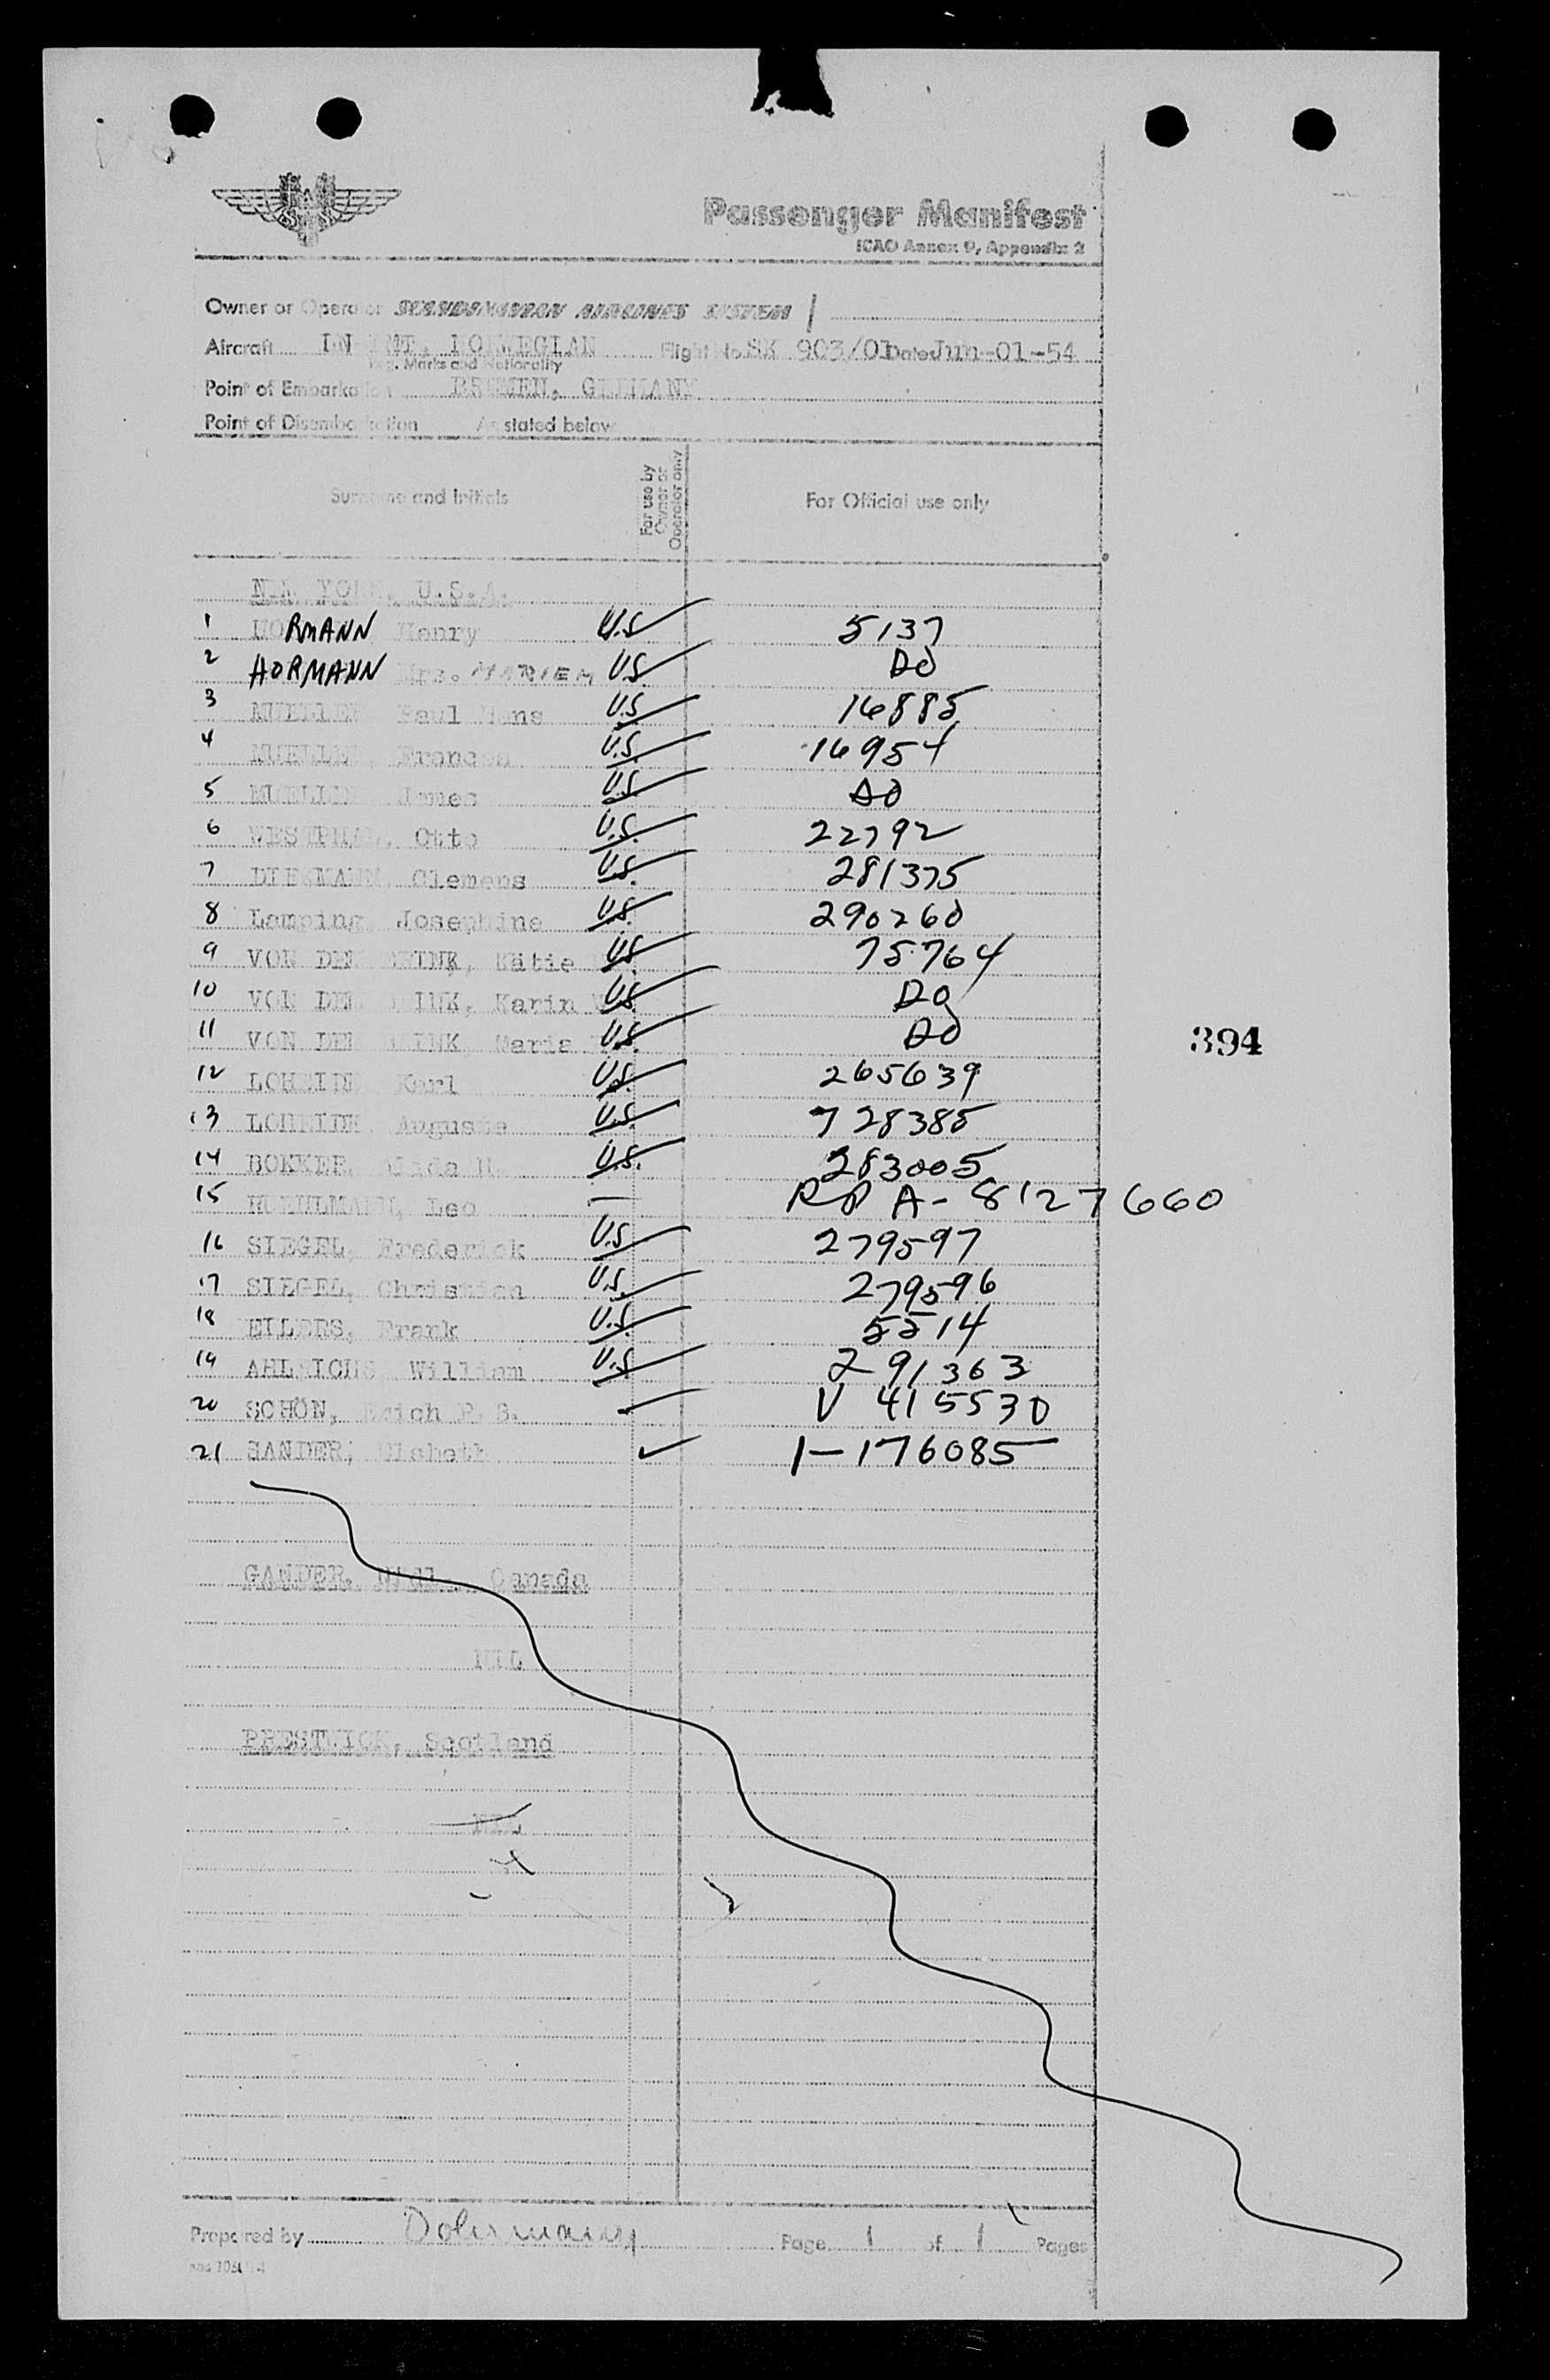 Passenger Manifest
ICAO Annex 9, Appendix 2
Owner or Operator SCANDINAVIAN AIRLINES SYSTEM
Aircraft NORWEGIAN Flight No. SK 903/01 Date: Jun-01-54
Marks and Nationality
Point of Embarkation BREMEN, GERMANY
Point of Disembarkation As stated below
Surname and Initials
For use by Owner or Operator only
For Official use only
NEW YORK, U.S.A.
1 HORMANN Henry U.S 5137
2 HORMANN Mrs. U.S. DO
3 MUELLER Paul Hans U.S 16885
4 MUELLER, Frances U.S. 16954
5 MUELLER James U.S. DO
6 WESTPHAL, Otto U.S. 22792
7 Clemens U.S. 281375
8 Lamping Josephine U.S. 290260
9 VON DEN BRINK, Kätie US 75764
10 VON DEN BRINK, Karin US. DO
11 VON DEN BRINK Maria U.S. DO
12 LOHEIDE Karl U.S. 265639
13 LOHEIDE, Auguste U.S. 728385
14 BOKKER, U.S. 283005
15 Leo — RP A-8127660
16 SIEGEL, Frederick U.S 279597
17 SIEGEL, Christian U.S. 279596
18 EILERS, Frank U.S. 5514
19 AHLRICHS William U.S 291363
20 SCHÖN, Erich P. S. V 415530
21 SANDER, Elsbeth ✓ 1-176085
394
GANDER, Nfdl., Canada
NIL
PRESTWICK, Scotland
NIL
Prepared by Page 1 of 1 Pages